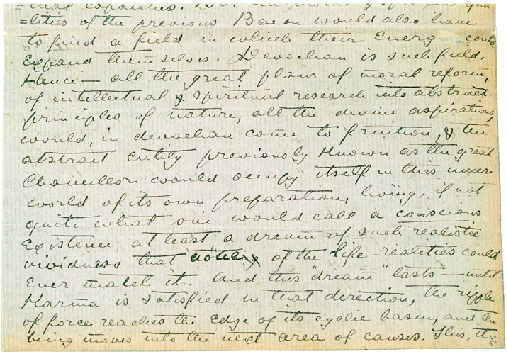 =lities of the previous Bacon would also have
to find a field in which their energy could
expand themselves. Devachan is such field.
Hence — all the great plans of moral reform,
of intellectual & spiritual research into abstract
principles of nature, all the divine aspirations
would, in devachan come to fruition, & the
abstract entity previously known as the great
Chancellor would occupy itself in this inner
world of its own preparation, living, if not
quite what one would call a conscious
existence at least a dream of such realistic
vividness that none of the life-realities could
ever match it. And this "dream" lasts — until
Karma is satisfied in that direction, the ripple
of force reaches the edge of its cyclic basin, and the
being moves into the next area of causes. This, it